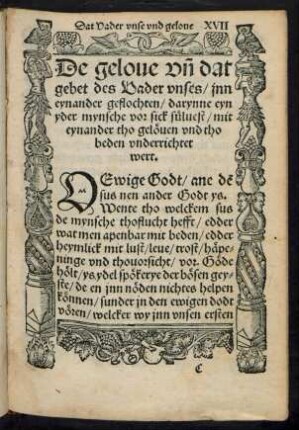 Dat Vader vnse vnd gelove XVII
De gelove vñ dat
gebet des Vader vnses/ jnn
eynander geflochten/ darynne eyn
yder mynsche vor sick sůluest/ mit
eynander tho gelöuen vnd tho
beden vnderrichtet
wert.
O Ewige Godt/ ane dē
sus nen ander Godt ys.
Wente tho welckem sus
de mynsche thoflucht hefft/ edder
wat men apenbar mit beden/ edder
heymlick mit lust/ leue/ trost/ häpe-
ninge vnd thouorsicht/ vor Göde
hölt/ ys ydel spökerye der bösen gey-
ste/ de en jnn nöden nichtes helpen
können/ sunder jn den ewigen dodt
vören/ welcker wy jnn vnsen ersten
C